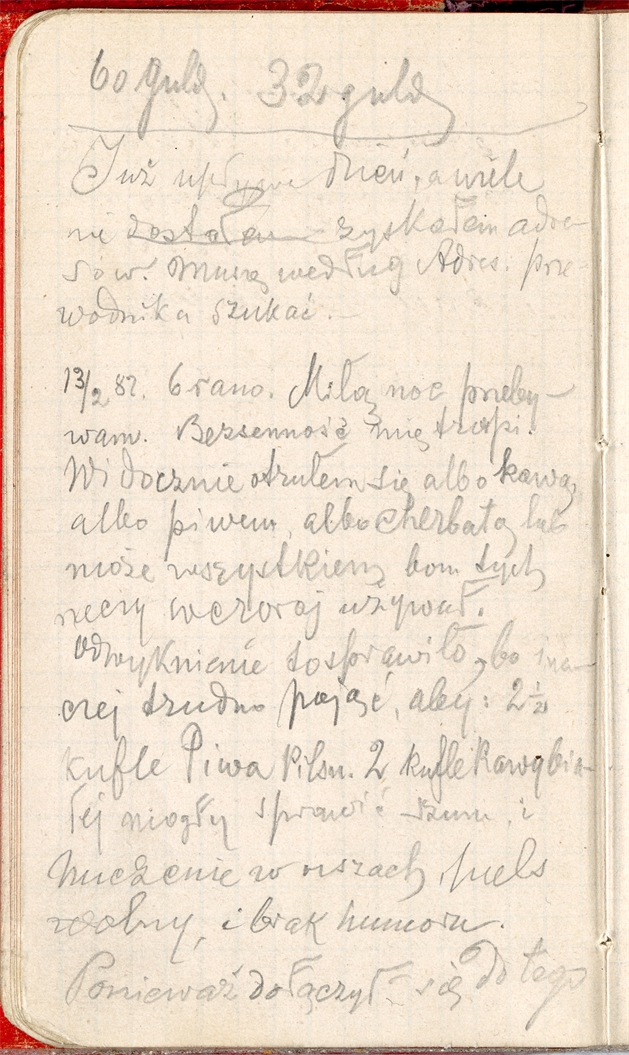 60 guld. 32 guld
Już upływa dzień, a wiele
nie dostałem zyskałem adre-
sów. Muszę według Adres. prze-
wodnika szukać. —
13/2 87. 6 rano. Miłą noc przeby-
wam. Bezsenność mię trapi.
Widocznie otrułem się albo kawą,
albo piwem, albo cherbatą lub
może wszystkiem, bom tych
rzeczy wczoraj używał.
Odwyknienie to sprawiło, bo ina-
czej trudno pojąć, aby: 2 1/2
kufle Piwa Pilsn. 2 kufle Kawy bia-
łej mogły sprawić szum i
huczenie w uszach, puls
wolny, i brak humoru.
Ponieważ dołączył się do tego